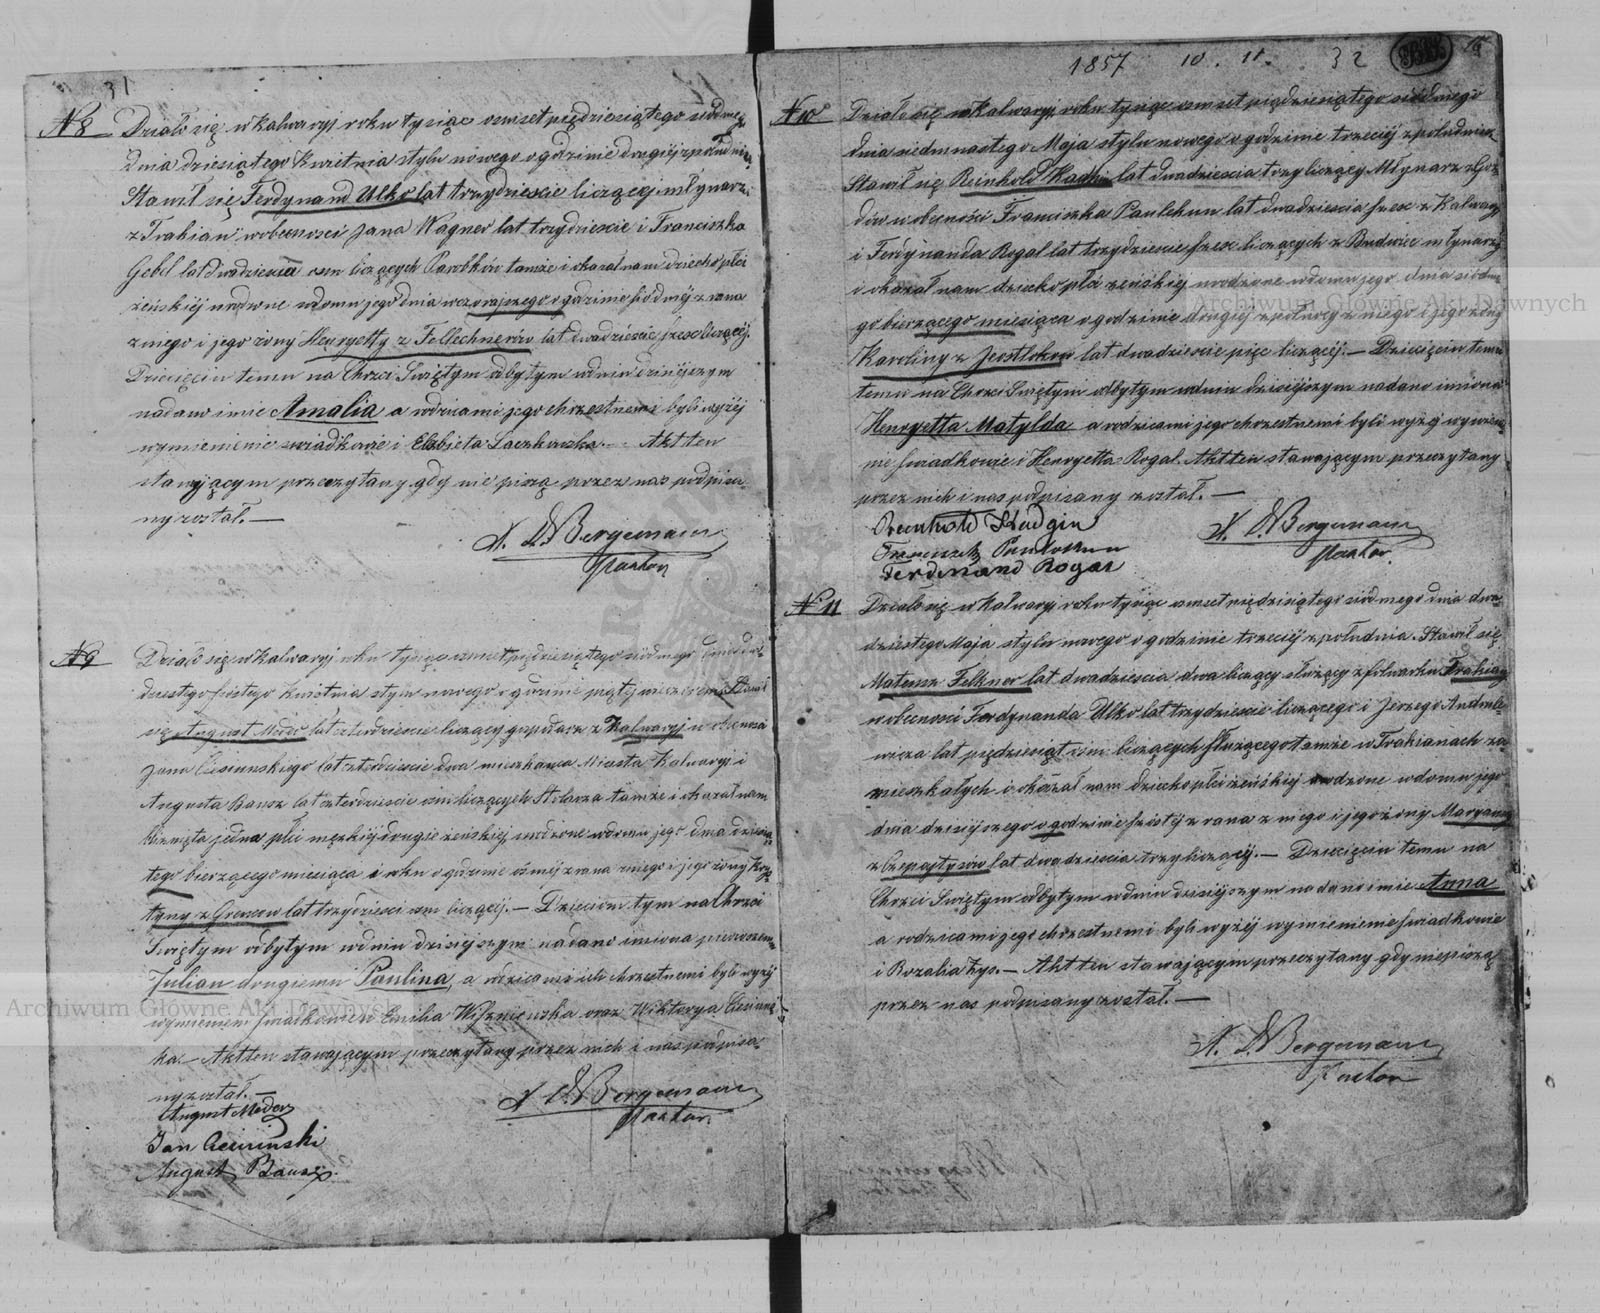 31
№ 8 Działo się w Kalwaryi roku tysiąc osmset pięćdziesiątego siódmego
dnia dziesiątego Kwietnia stylu nowego o godzinie drugiéj z południa.
Stawił się Ferdynand Ulko lat trzydzieście liczący młynarz
z Trakian w obecności Jana Wagner lat trzydzieście i Franciszka
Gebel lat dwadzieścia osm liczących Parobków tamże i okazał nam dziecko płci
żeńskiéj urodzone w domu jego dnia wczorajszego o godzinie siódméj z rana
z niego i jego żony Henryetty z Fellechnerów lat dwadzieście liczącéj.
Dziecięciu temu na Chrzci Świętym odbytym w dniu dzisiéjszym
nadano imie Amalia a rodzicami jego chrzestnemi byli wyżéj
wymienienie swiadkowie i Elżbieta. — Akt ten
stawającym przeczytany gdy nie piszą przez nas podpisa-
ny został. —
X. Bergemann
Pastor
№ 9 Działo się w Kalwaryi roku tysiąc osmset pięćdziesiątego siódmego dnia dwu-
dziestego szóstego Kwietnia stylu nowego o godzinie piątéj wieczorem Stawił
się August Meder lat czterdzieście liczący gospodarz z Kalwaryi w obecności
Jana Ciesiunskiego lat czterdzieście dwa mieszkańca Miasta Kalwaryi i
Augusta Bausz lat czterdzieście osm liczących Stolarza tamże i okazał nam
bliznięta jedna płci męzkiéj drugie żeńskiéj urodzone w domu jego dnia dziesią-
tego bierzącego miesiąca i roku o godzinie ósméj z rana z niego i jego żony Kry-
tyny z lat trzydzieści osm liczącéj. — Dzieciom tym na Chrzci
Świętym odbytym w dniu dzisiéjszym nadano imiona pierwszemu
Julian drugiemu Paulina, a rodzicami ich chrzestnemi byli wyżéj
wymienieni swiadkowie i Emilia oraz Wiktorya Ciesiuńs-
ka — Akt ten stawającym przeczytany przez nich i nas podpisa-
ny został. —
August Meder
Jan
August Bausz
X. Bergemann
Pastor
1857 10. 11. 32
№ 10 Działo się w Kalwaryi roku tysiąc osmset pięćdziesiątego siódmego
dnia siedmnastego Maja stylu nowego o godzinie trzeciéj z południa.
Stawił się Reinhold lat dwadzieścia trzy liczący Młynarz z
w obecności Franciszka Paulekun lat dwadzieścia szesc z Kalwaryi
i Ferdynanda Rogal lat trzydzieście szesc liczących z Budwiec młynarzy
i okazał nam dziecko płci żeńskiéj urodzone w domu jego dnia siódme-
go bierzącego miesiąca o godzinie drugiéj z północy z niego i jego żony
Karoliny z lat dwadzieście pięc liczącéj. — Dziecięciu temu
temu na Chrzci Świętym odbytym w dniu dzisiéjszym nadano imiona
Henryetta Matylda a rodzicami jego chrzestnemi byli wyżéj wymienie-
nie swiadkowie i Henryetta Rogal. Akt ten stawającym przeczytany
przez nich i nas podpisany został. —
Reinhold
Franciszek
Ferdinand Rogal
X. Bergemann
Pastor.
№ 11 Działo się w Kalwaryi roku tysiąc osmset pięćdziesiątego siódmego dnia dwu-
dziestego Maja stylu nowego o godzinie trzeciéj z południa. Stawił się
Mateusz Felkner lat dwadzieścia dwa liczący służący z folwarku Trakiany
w obecności Ferdynanda Ulko lat trzydzieście liczącego i Jerzego Andrule-
wicza lat pięćdziesiąt osm liczących służącego tamże w Trakianach za-
mieszkałych i okazał nam dziecko płci żeńskiéj urodzone w domu jego
dnia dzisiéjszego o godzinie szóstéj z rana z niego i jego żony Maryanny
z lat dwadzieścia trzy liczącéj. — Dziecięciu temu na
Chrzci Świętym odbytym w dniu dzisiéjszym nadano imie Anna
a rodzicami jego chrzestnemi byli wyżéj wymienienie swiadkowie
i Rozalia Żys. — Akt ten stawającym przeczytany gdy nie piszą
przez nas podpisany został. —
X. Bergemann
Pastor
Archiwum Główne Akt Dawnych
Archiwum Główne Akt Dawnych